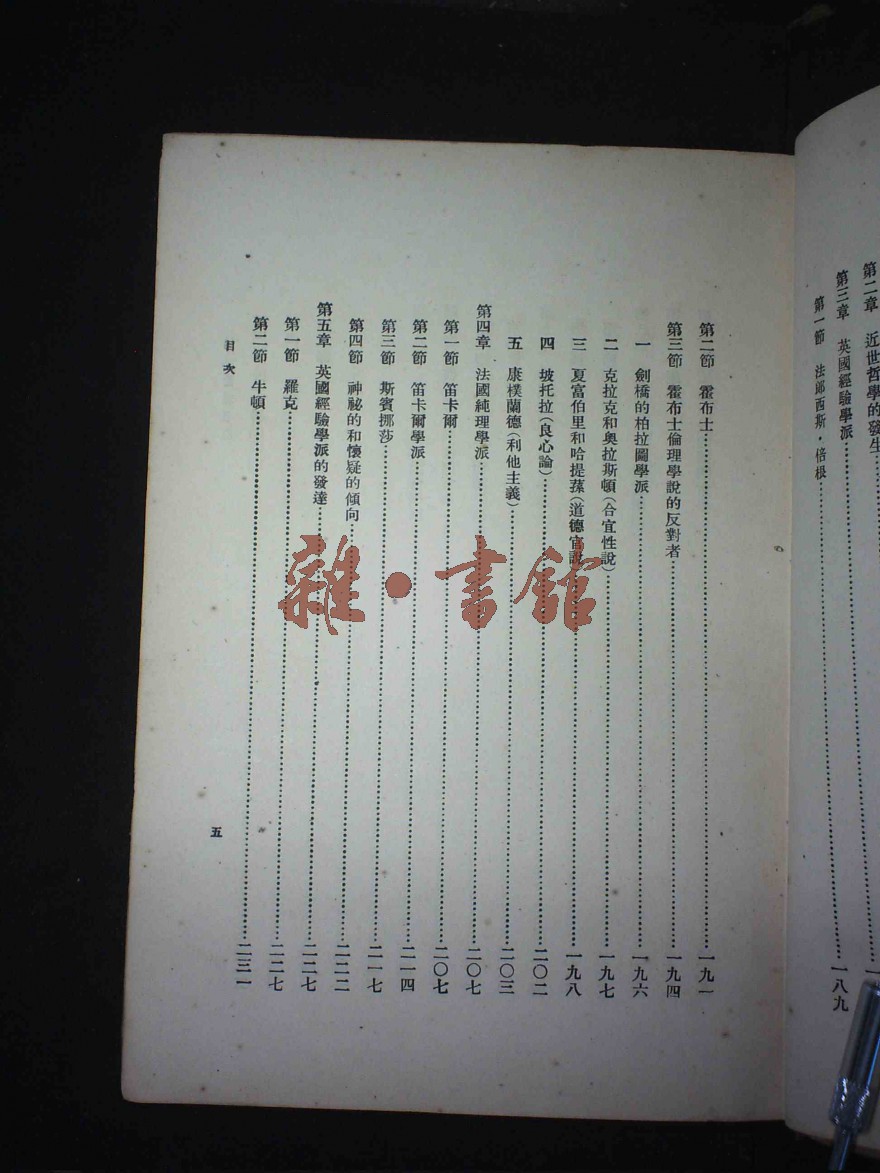 第二章　近世哲學的發生
第三章　英國經驗學派
第一節　法郎西斯·倍根…………一八九
第二節　霍布士…………一九一
第三節　霍布士倫理學說的反對者…………一九四
一　劍橋的柏拉圖學派…………一九六
二　克拉克和奧拉斯頓（合宜性說）…………一九七
三　夏富伯里和哈提蓀（道德官說）…………一九八
四　坡托拉（良心論）…………二〇二
五　康樸蘭德（利他主義）…………二〇三
第四章　法國純理學派…………二〇七
第一節　笛卡爾…………二〇七
第二節　笛卡爾學派…………二一四
第三節　斯賓挪莎…………二一七
第四節　神祕的和懷疑的傾向…………二二二
第五章　英國經驗學派的發達…………二二七
第一節　羅克…………二二七
第二節　牛頓…………二三一
目次
五
雜·書館